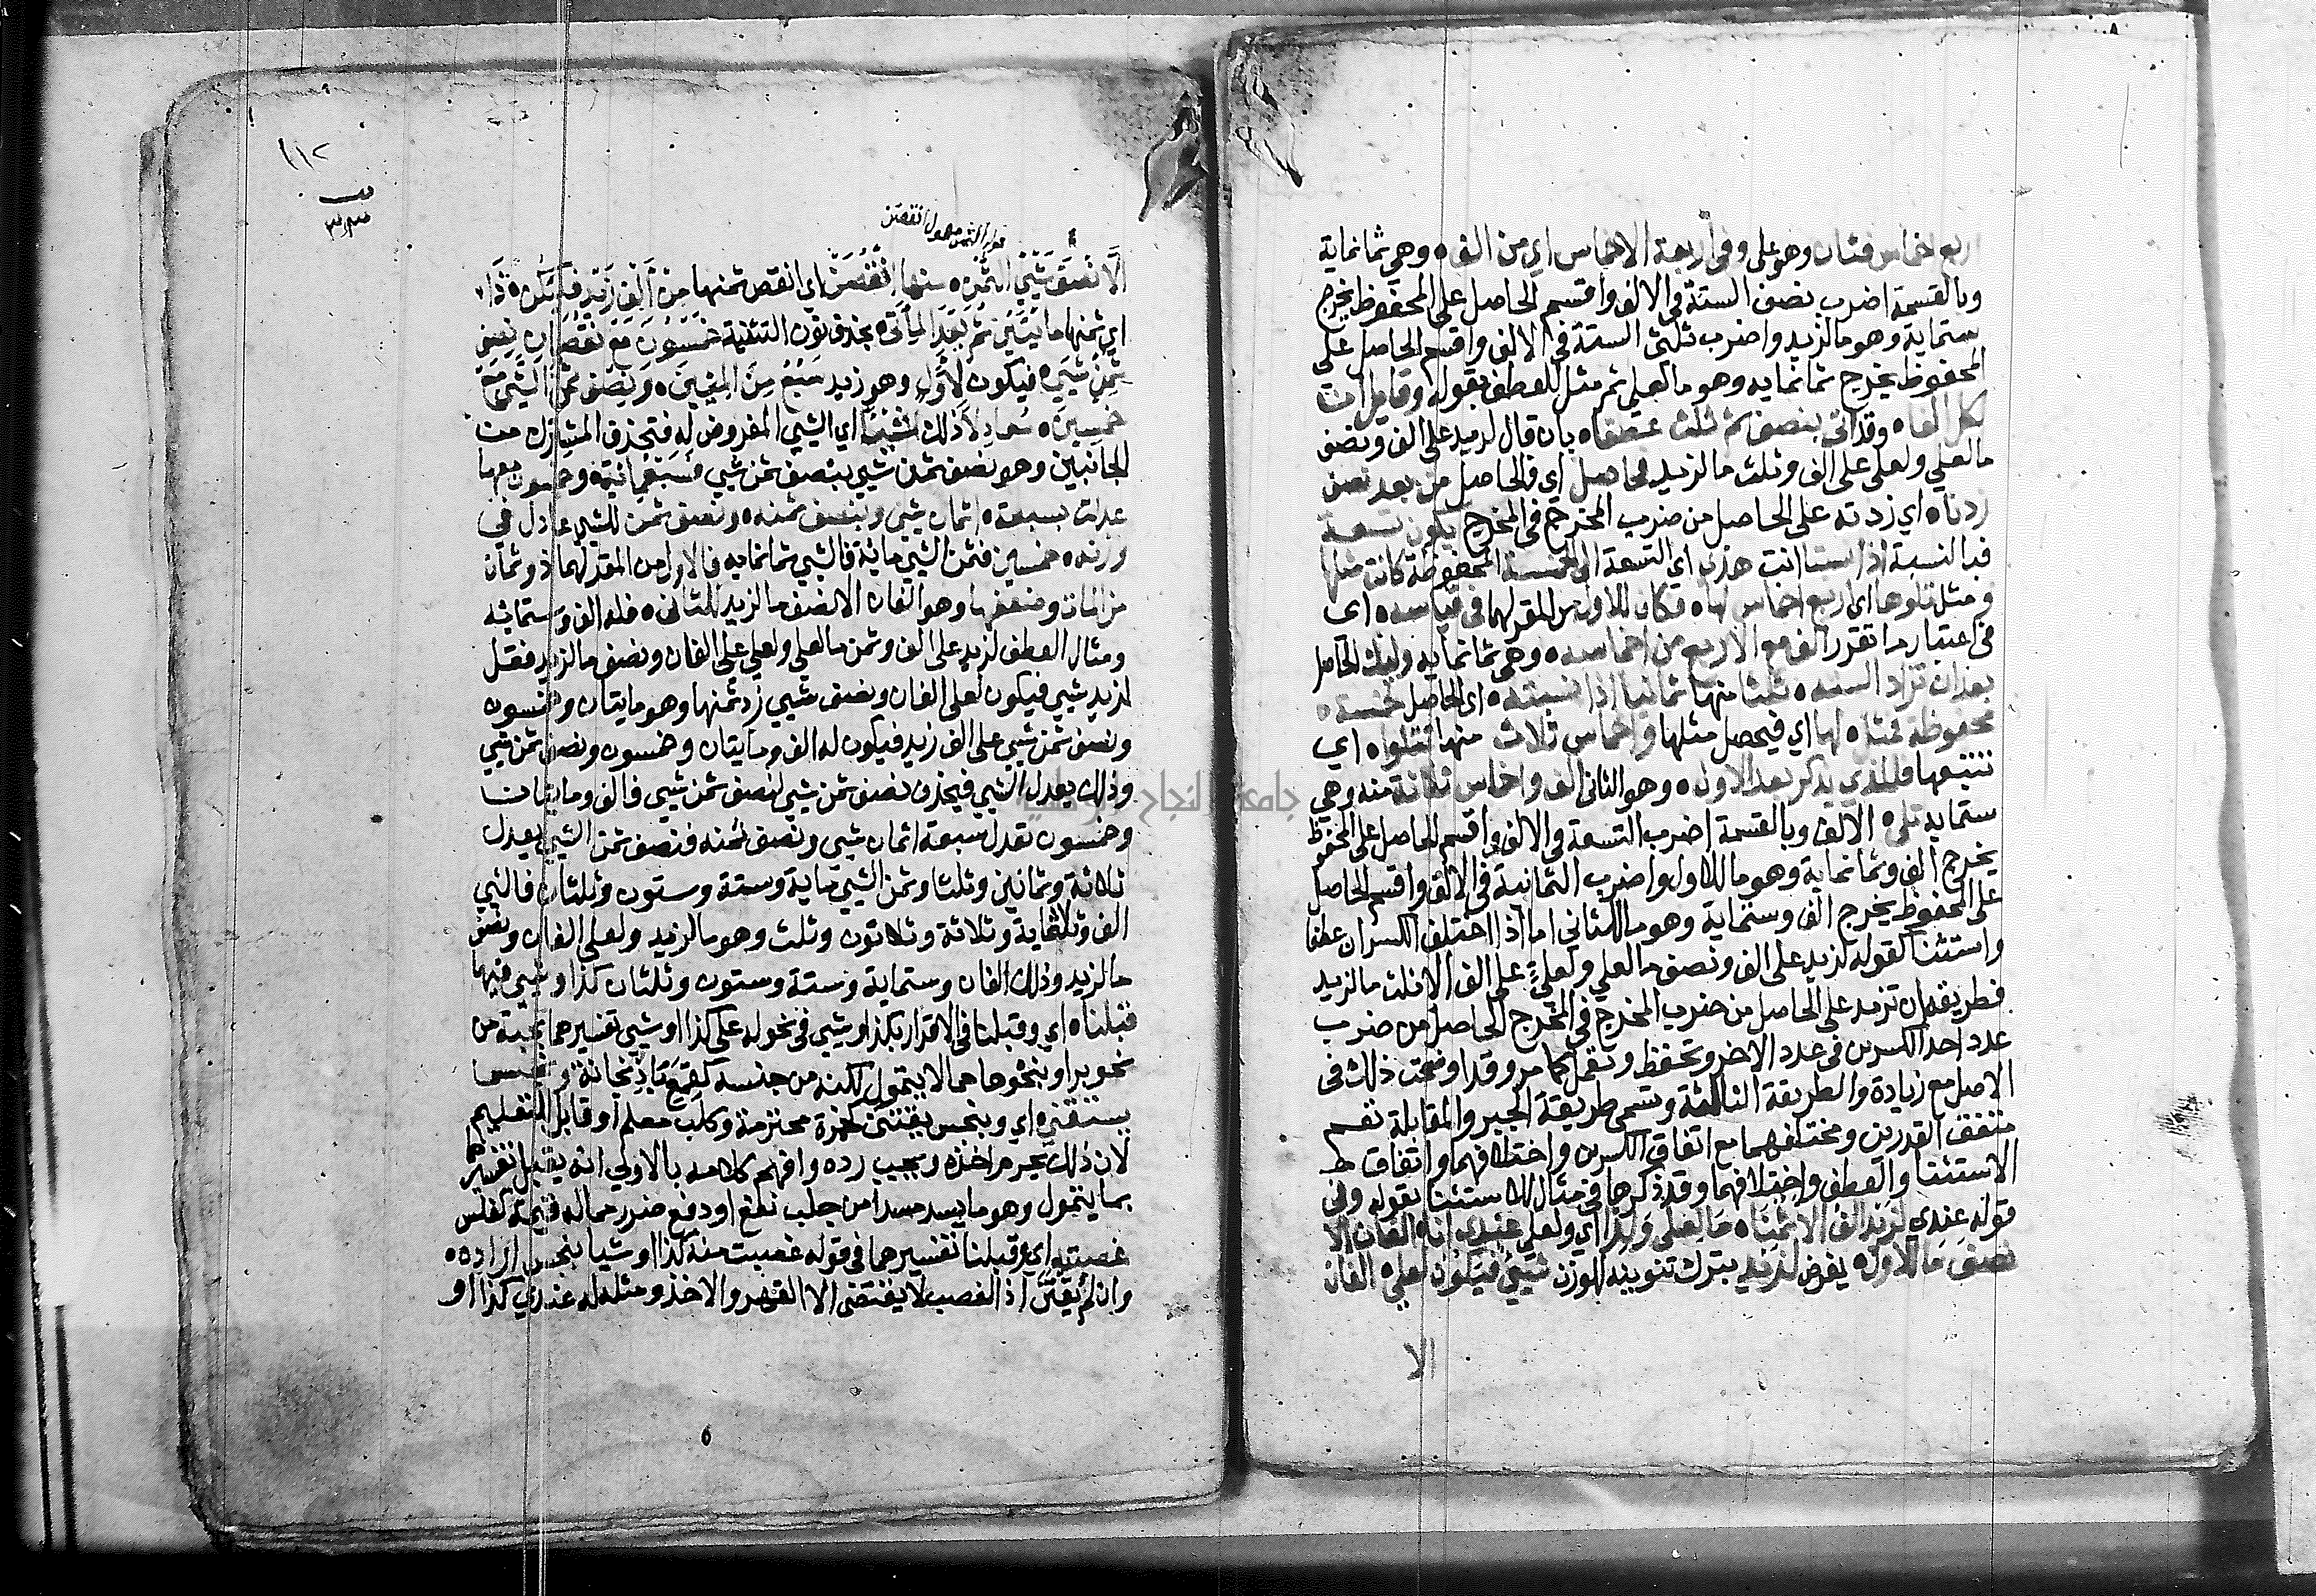 اربع اخماس فثمان وهو على وفى اربعة الاخماس اي من الف ه وهي ثمانماية
وبالقسمة اضرب نصف الستة في الالف واقسم الحاصل على المحفوظ يخرج
ستماية وهو مالزيد واضرب ثلثى الستة في الالف واقسم الحاصل على
المحفوظ يخرج ثمانمايه وهو مالعلى ثم مثل للعطف بقوله وقايل ان
لكل الفا ه وقد اتى بنصف ثم ثلث عطفا ه بان قال لزيد على الف ونصف
مالعلي ولعلى على الف وثلث مالزيد فحاصل اي فالحاصل من بعد
زدناه اي زدته على الحاصل من ضرب المخرج في المخرج يكون تسعة
فبالنسبة اذا نسبتا انت هذى اي التسعة الى الخمسة المحفوظة كانت مثلها
ومثل تلوها اي اربع اخماس لها ه فكان للاول من المقر لهما في قياسه ه اى
فى اعتبار ما تقرر الف مع الاربع من اخماسه ه وهي ثمانمايه وليك الحاصل
بعد ان تزاد الستة ه ثلثا منها ثمانيا اذا نسبته ه اى الحاصل لخمسة ه
محفوظة فمثل ه لها اي فيحصل مثلها واخماس ثلاث منها تتلوا ه اي
تتبعها فللذي يذكر بعد الاول ه وهو الثانى الف واخماس ثلاثة منه وهي
ستمايه تلى ه الالف وبالقسمة اضرب التسعة في الالف واقسم الحاصل على المحفوظ
يخرج الف وثمانماية وهو ما للاول واضرب الثمانية في الالف واقسم الحاصل
على المحفوظ يخرج الف وستماية وهو ما للثاني اما اذا اختلف الكسران عطفا
واستثنا كقوله لزيد على الف ونصف مالعلي ولعلي على الف الا ثلث مالزيد
فطريقه ان تزيد على الحاصل من ضرب المخرج في المخرج الحاصل من ضرب
عدد احد الكسرين فى عدد الاخر وتحفظ وتعمل كما مر وقد اوضحت ذلك فى
الاصل مع زيادة والطريقة الثالثة وتسمى طريقة الجبر والمقابلة تعم
متفق القدرين ومختلفهما مع اتفاق الكسرين واختلافهما واتفاق
الاستثنا والعطف واختلافهما وقد ذكرها في مثال للاستثنا بقوله وفى
قوله عندي لزيد الف الا ثمنا ه مالعلى ولذا اي ولعلي عندى انا ه الفان الا
نصف ما للاول ه يفرض لزيد بترك تنوينه للوزن شيئ فيكون لعلي ه الفان
الا
١١٢
الا نصف شيئ الثمن ه منها انقصن اي انقص ثمنها من الف زيد فيكن ه ذا
اي ثمنها مائتين ثم بعد المائتي ه بحذف نون التثنية خمسون مع نقصان نصف
ثمن شيئ ه فيكون للاول وهو زيد سبع من المئين ه ونصف ثمن الشيئ مع
خمسين ه معادلا ذلك لشيئا اي الشيئ المفروض له فتحذف المشترك من
الجانبين وهو نصف ثمن شيئ بنصف ثمن شيى فسبعمائة وخمسون معها
عدلت بسبعة ه اثمان شيئ وبنصف ثمنه ه ونصف ثمن للشيئ عادل في
وزنه ه خمسين فثمن الشيئ ماية فالشيئ ثمانمايه فالاول من المقر لهما ذو ثمان
من المات وضعفها وهو الفان الا نصف مالزيد للثانى ه فله الف وستماية
ومثال العطف لزيد على الف وثمن مالعلي ولعلي على الفان ونصف مالزيد فقل
لزيد شيئ فيكون لعلى الفان ونصف شيئ زد ثمنها وهو مايتان وخمسون
ونصف ثمن شيئ على الف زيد فيكون له الف ومايتان وخمسون ونصف ثمن شيئ
وذلك يعدل الشيئ فيحذف نصف ثمن شيئ لنصف ثمن شيئ فالف ومايتان
وخمسون تعدل سبعة اثمان شيئ ونصف ثمنه فنصف ثمن الشيئ يعدل
ثلاثة وثمانين وثلثا وثمن الشيئ ماية وستة وستون وثلثان فالشيئ
الف وثلثماية وثلاثة وثلاثون وثلث وهو مالزيد ولعلى الفان ونصف
مالزيد وذلك الفان وستماية وستة وستون وثلثان كذا وشيئ فيها
قبلناه اي وقبلنا فى الاقرار بكذا وشيئ فى نحو له على كذا او شيئ تفسيرهما بحبة من
نحو بر او بنحوها مما لا يتمول لكنه من جنسه كقمع باذنجانة
يستقتنى ه اي وبنجس يقتنى كخمرة محترمة وكلب معلم او قابل للتعليم
لان ذلك يحرم اخذه ويجب رده وافهم كلامه بالاولى انه يقبل تفسيرهما
بما يتمول وهو ما يسد مسدا من جلب نفع او دفع ضرر مما له قيمة كفلس
غصبته اي وقبلنا تفسيرهما فى قوله غصبت منه كذا او شيا بنجس اراده ه
وان لم يقتن اذ الغصب لا يقتضى الا القهر والاخذ ومثله له عندي كذا او